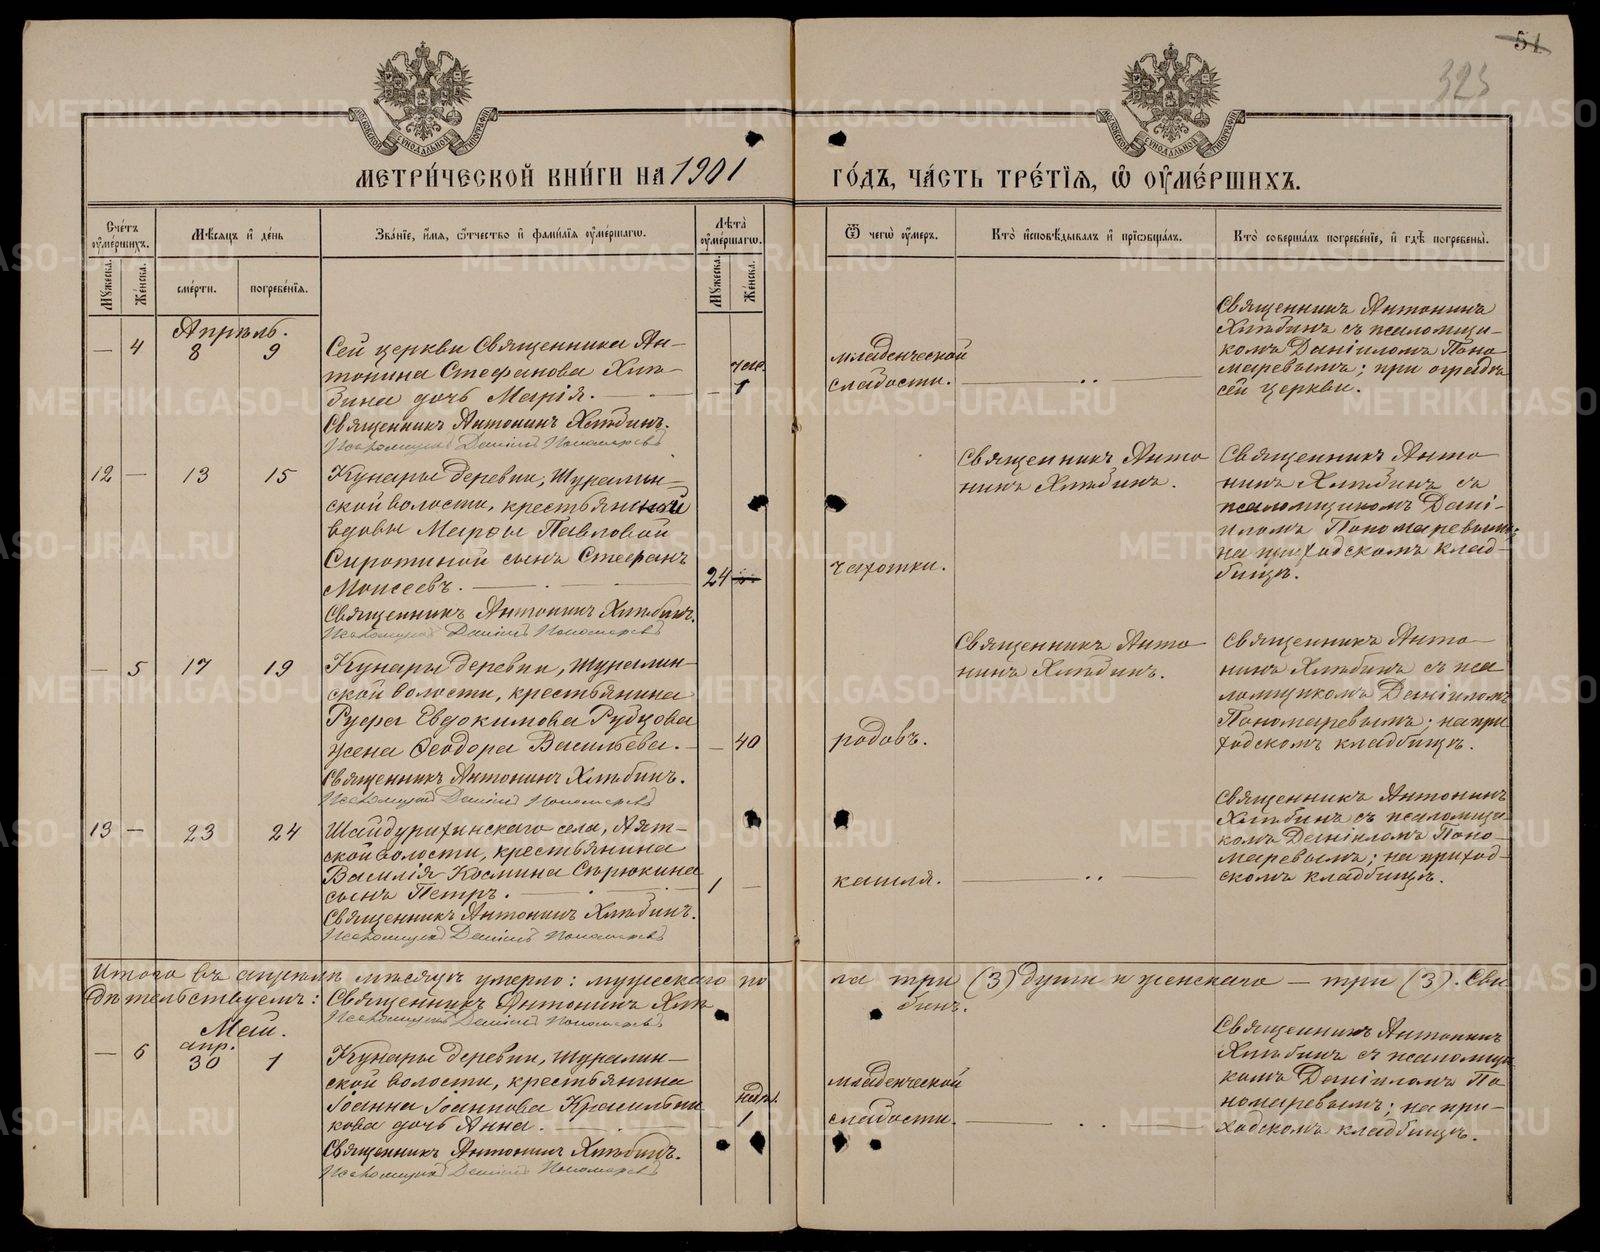 51
323
МЕТРИ́ЧЕСКОЙ КНИ́ГИ НА 1901 ГО́ДЪ, ЧА́СТЬ ТРЕ́ТЇѦ, Ѡ҆ ОУ҆МЕ́РШИХЪ.
Сче́тъ оу҆ме́ршихъ.
Мѣ́сяцъ и҆ де́нь
Зва́нїе, и҆́мя, ѻ҆́тчество и҆ фами́лїя оу҆ме́ршагѡ.
Лѣта̀ оу҆ме́ршагѡ.
Ѿ чегѡ̀ оу҆́меръ.
Кто̀ и҆сповѣ́дывалъ и҆ прїѡбща́лъ.
Кто̀ соверша́лъ погребе́нїе, и҆ гдѣ̀ погребены̀.
Мꙋ́жеска.
Же́нска.
сме́рти.
погребе́нїя.
Мꙋ́жеска.
Же́нска.
Апрѣль.
— 4 8 9
Сей церкви Священника Ан-
тонина Стефанова Хлѣ-
бина дочь Марія. —
Священникъ Антонинъ Хлѣбинъ.
Псаломщикъ Даніилъ Пономаревъ
час.
— 1
младенческой
слабости.
Священникъ Антонинъ
Хлѣбинъ съ псаломщи-
комъ Даніиломъ Поно
маревымъ; при оградѣ
сей церкви.
12 — 13 15
Кунары деревни, Шуралин-
ской волости, крестьянской
вдовы Марѳы Павловой
Сиротиной сынъ Стефанъ
Моисеевъ. —
Священникъ Антонинъ Хлѣбинъ.
Псаломщикъ Даніилъ Пономаревъ
24
чахотки.
Священникъ Анто
нинъ Хлѣбинъ.
Священникъ Анто
нинъ Хлѣбинъ съ
псаломщикомъ Дані-
иломъ Пономаревымъ;
на приходскомъ клад-
бищѣ.
— 5 17 19
Кунары деревни, Шуралин-
ской волости, крестьянина
Руфа Евдокимова Рубцова
жена Ѳеодора Васильева. —
Священникъ Антонинъ Хлѣбинъ.
Псаломщикъ Даніилъ Пономаревъ
— 40
родовъ.
Священникъ Анто
нинъ Хлѣбинъ.
Священникъ Анто
нинъ Хлѣбинъ съ пса
ломщикомъ Даніиломъ
Пономаревымъ; на при
ходскомъ кладбищѣ.
13 — 23 24
Шайдурихинскаго села, Аят-
ской волости, крестьянина
Василія Космина Сырюкина
сынъ Петръ. —
Священникъ Антонинъ Хлѣбинъ.
Псаломщикъ Даніилъ Пономаревъ
1 —
кашля.
Священникъ Антонинъ
Хлѣбинъ съ псаломщи
комъ Даніиломъ Поно-
маревымъ; на приход-
скомъ кладбищѣ.
Итого въ апрѣлѣ мѣсяцѣ умерло: мужескаго по ла три (3) души и женскаго — три (3). Сви
дѣтельствуемъ: Священникъ Антонинъ Хлѣ бинъ.
Псаломщикъ Даніилъ Пономаревъ
Май.
апр.
— 6 30 1
Кунары деревни, Шуралин-
ской волости, крестьянина
Іоанна Іоаннова Красильни
кова дочь Анна. —
Священникъ Антонинъ Хлѣбинъ.
Псаломщикъ Даніилъ Пономаревъ
нед.
1
младенческой
слабости.
Священникъ Антонинъ
Хлѣбинъ съ псаломщи
комъ Даніиломъ По
номаревымъ; на при-
ходскомъ кладбищѣ.
METRIKI.GASO-URAL.RU